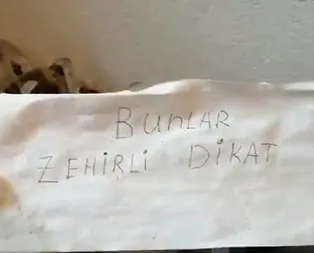 BUnLAR
ZEHiRLi DiKAT